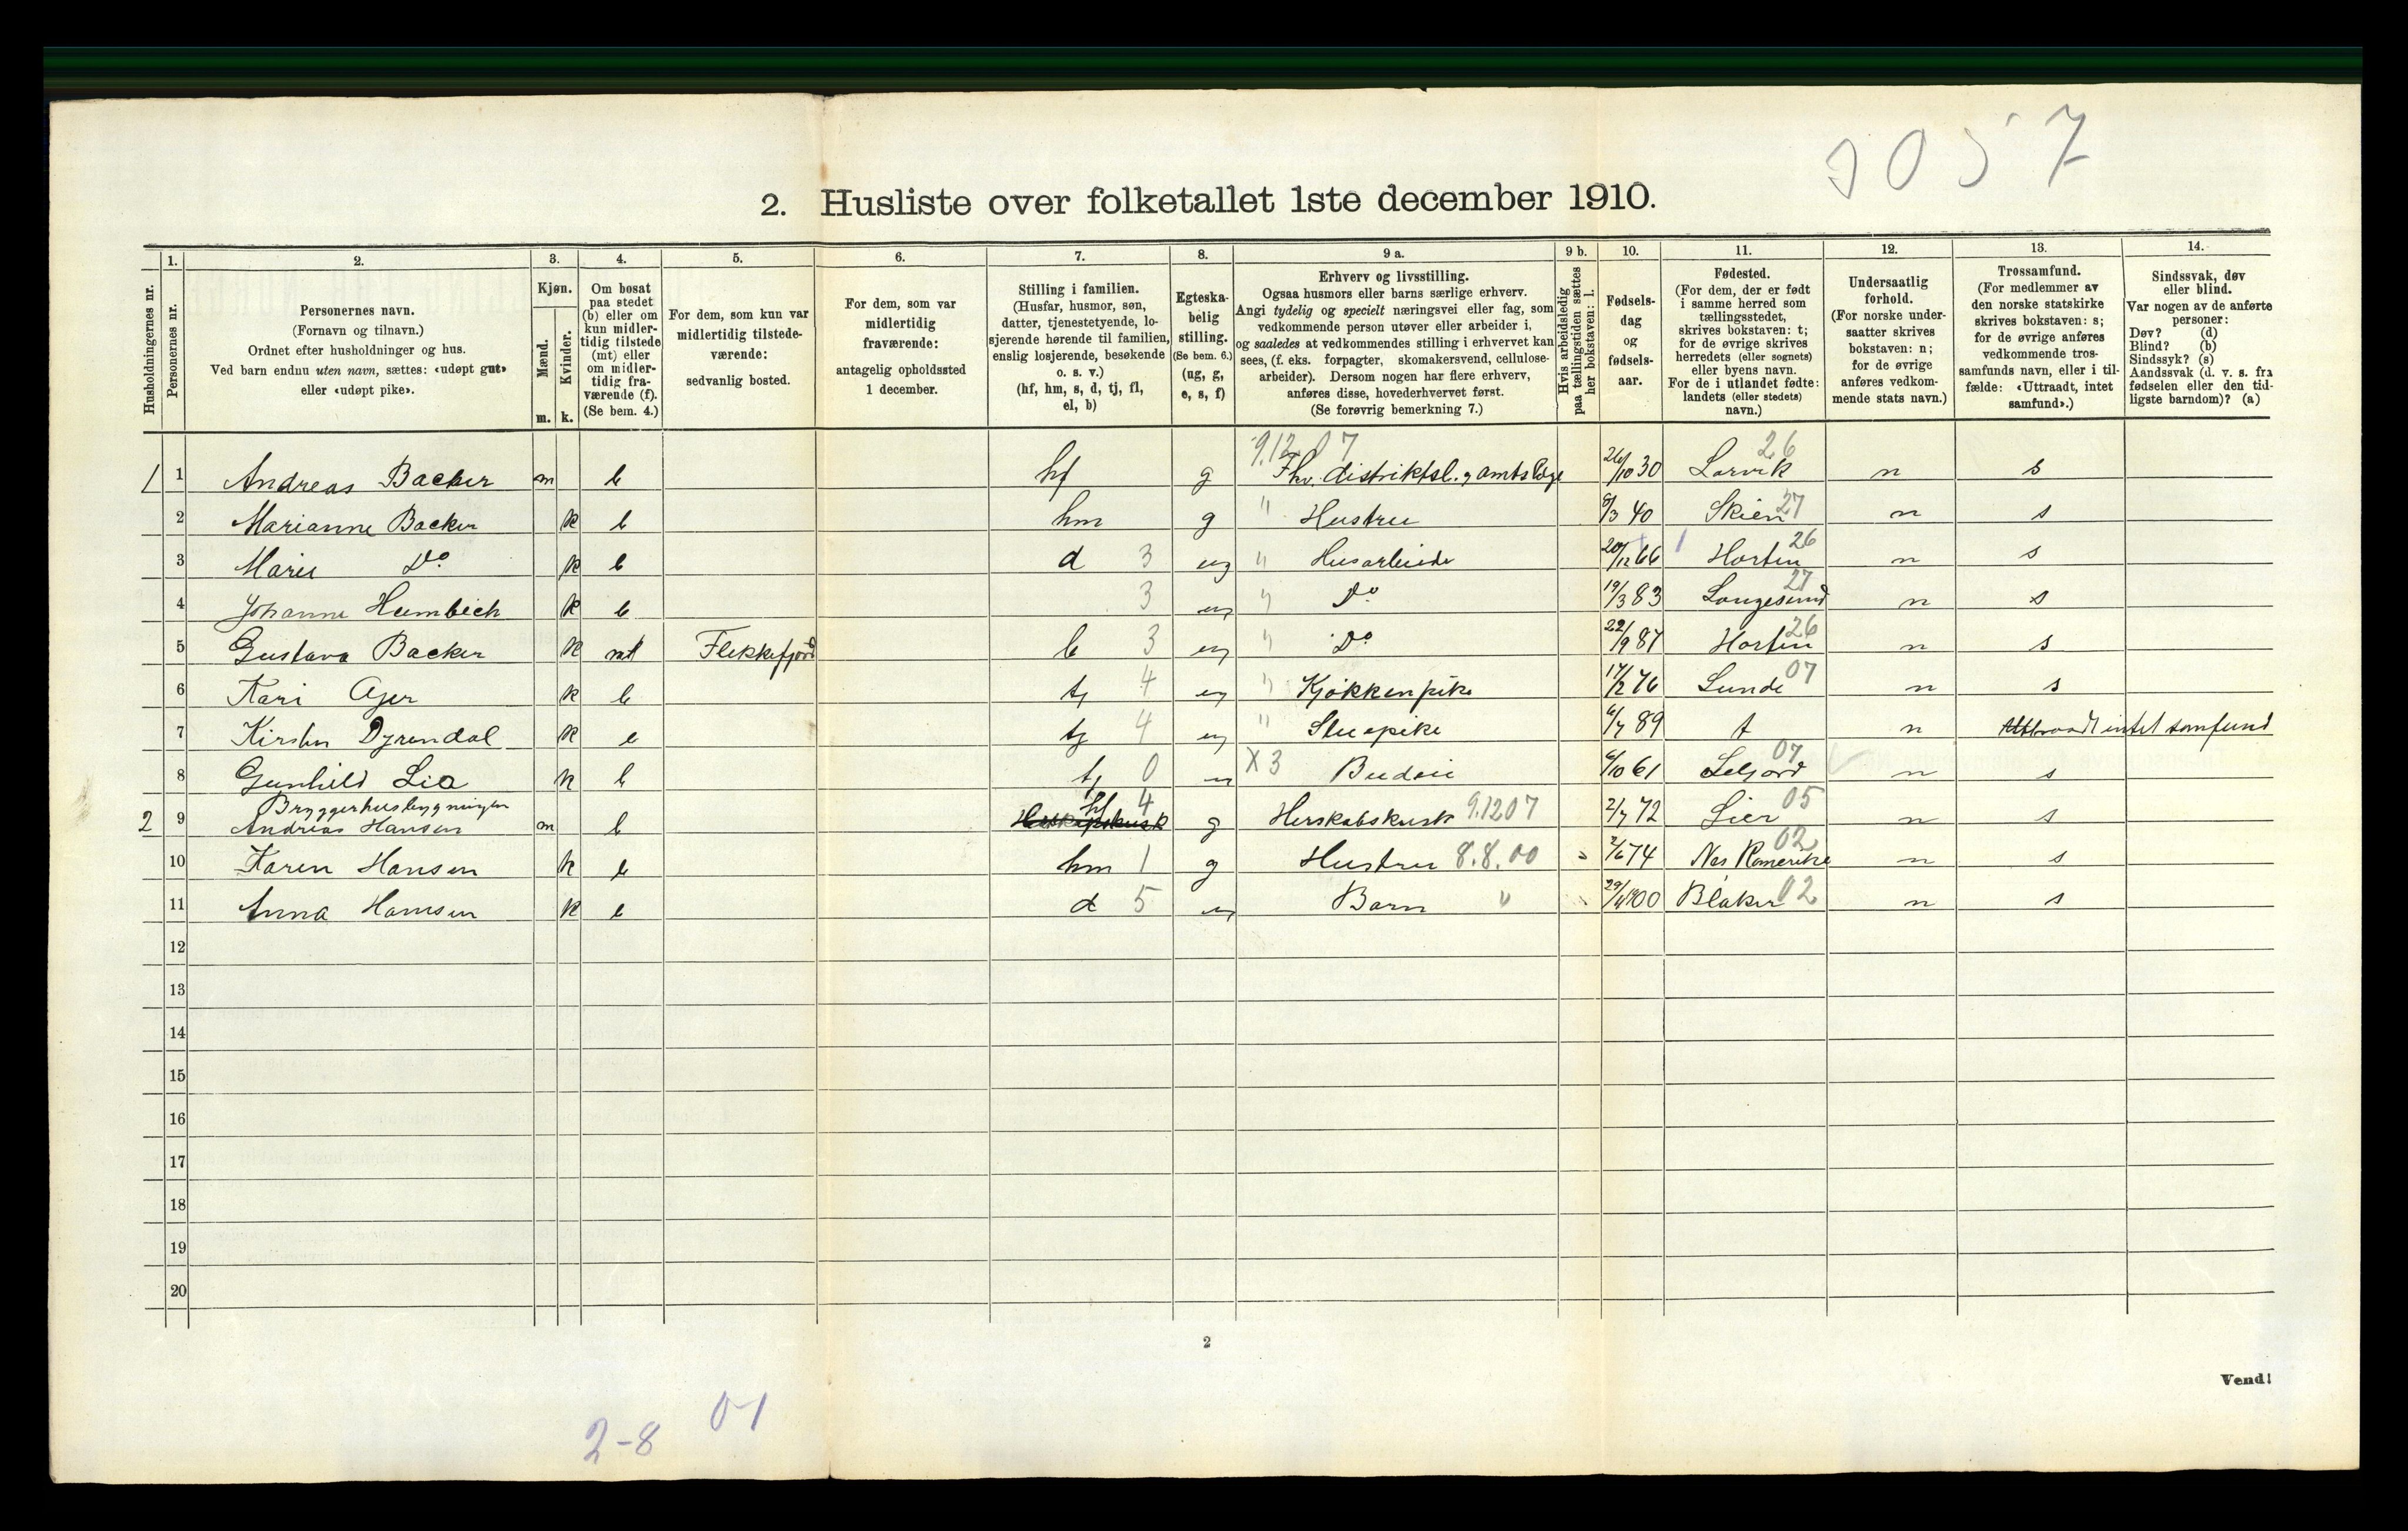 9057
2. Husliste over folketallet 1ste december 1910.
Husholdningernes nr.
1. Personernes nr.
2. Personernes navn.
(Fornavn og tilnavn.)
Ordnet efter husholdninger og hus.
Ved barn endnu uten navn, sættes: «udøpt gut»
eller «udøpt pike».
3. Kjøn.
Mænd. m.
Kvinder. k.
4. Om bosat
paa stedet
(b) eller om
kun midler-
tidig tilstede
(mt) eller
om midler-
tidig fra-
værende (f).
(Se bem. 4.)
5. For dem, som kun var
midlertidig tilstede-
værende:
sedvanlig bosted.
6. For dem, som var
midlertidig
fraværende:
antagelig opholdssted
1 december.
7. Stilling i familien.
(Husfar, husmor, søn,
datter, tjenestetyende, lo-
sjerende hørende til familien,
enslig losjerende, besøkende
o. s. v.)
(hf, hm, s, d, tj, fl,
el, b)
8. Egteska-
belig
stilling.
(Se bem. 6.)
(ug, g,
e, s, f)
9 a. Erhverv og livsstilling.
Ogsaa husmors eller barns særlige erhverv.
Angi tydelig og specielt næringsvei eller fag, som
vedkommende person utøver eller arbeider i,
og saaledes at vedkommendes stilling i erhvervet kan
sees, (f. eks. forpagter, skomakersvend, cellulose-
arbeider). Dersom nogen har flere erhverv,
anføres disse, hovederhvervet først.
(Se forøvrig bemerkning 7.)
9 b. Hvis arbeidsledig
paa tællingstiden sættes
her bokstaven: l.
10. Fødsels-
dag
og
fødsels-
aar.
11. Fødested.
(For dem, der er født
i samme herred som
tællingsstedet,
skrives bokstaven: t;
for de øvrige skrives
herredets (eller sognets)
eller byens navn.
For de i utlandet fødte:
landets (eller stedets)
navn.)
12. Undersaatlig
forhold.
(For norske under-
saatter skrives
bokstaven: n;
for de øvrige
anføres vedkom-
mende stats navn.)
13. Trossamfund.
(For medlemmer av
den norske statskirke
skrives bokstaven: s;
for de øvrige anføres
vedkommende tros-
samfunds navn, eller i til-
fælde: «Uttraadt, intet
samfund».)
14. Sindssvak, døv
eller blind.
Var nogen av de anførte
personer:
Døv? (d)
Blind? (b)
Sindssyk? (s)
Aandssvak (d. v. s. fra
fødselen eller den tid-
ligste barndom)? (a)
1 1 Andreas Backer m b hf g 9.12.07 Fhv. distriktsl. og amtslæge 26/10 30 Larvik 26 n s
2 Marianne Backer k b hm g " Hustru 8/3 40 Skien 27 n s
3 Marie Do k b d 3 ug " Husarbeide 20/12 66 Horten 26 n s
4 Johanne Humbich k b 3 ug " Do 19/3 83 Langesund 27 n s
5 Gustava Backer k mt Flekkefjord b 3 ug " Do 22/9 87 Horten 26 n s
6 Kari Ajer k b tj 4 ug " Kjøkkenpike 17/12 76 Lunde 07 n s
7 Kirsten Dyrendal k b tj 4 ug " Stuepike 6/7 89 t n Uttraadt intet samfund
8 Gunhild Lia k b tj 0 ug X3 Budeie 6/10 61 Seljord 07 n s
Bryggerhusbygningen
2 9 Andreas Hansen m b Herskapskusk hf 4 g Herskabskusk 9.12 07 2/7 72 Lier 05 n s
10 Karen Hansen k b hm 1 g Hustru 8.8.00 2/6 74 Nes Romerike 02 n s
11 Anna Hansen k b d 5 ug Barn " 29/4 1900 Blaker 02 n s
12
13
14
15
16
17
18
19
20
2
Vend!
2-8 01